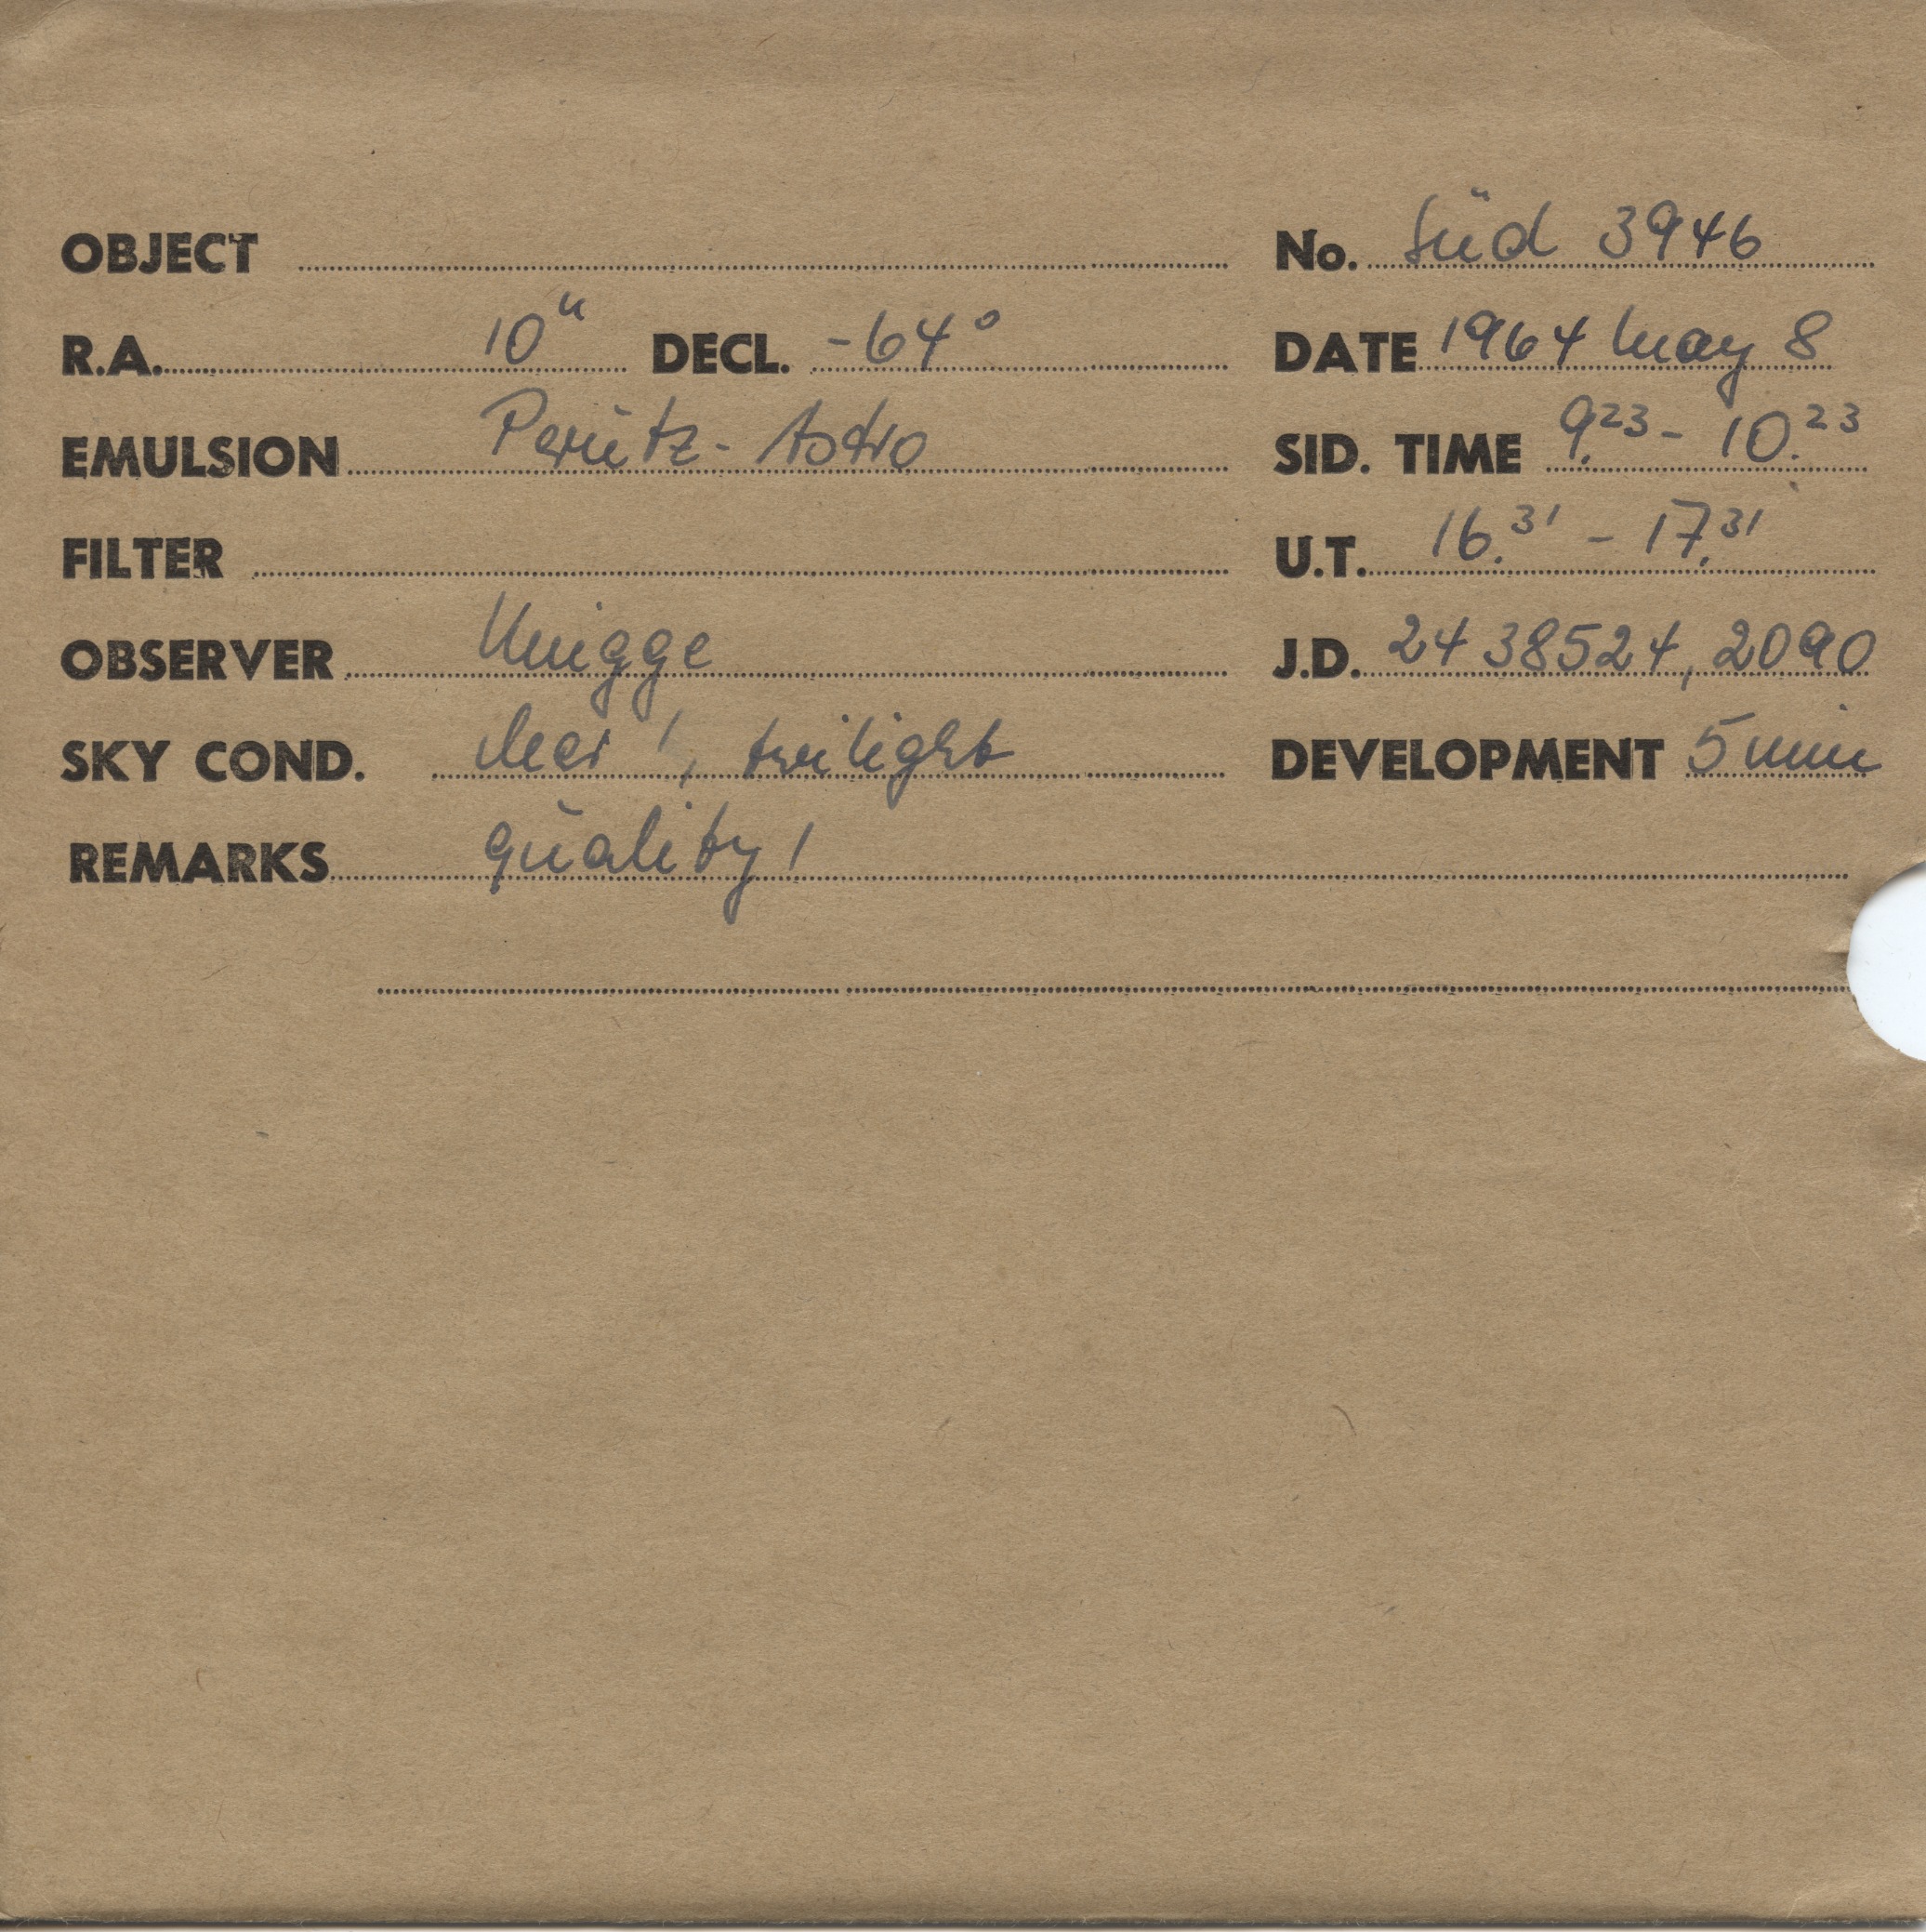 OBJECT No. Süd 3946
R.A. 10ʰ DECL. -64° DATE 1964 May 8
EMULSION Perutz-Astro SID. TIME 9.23 - 10.23
FILTER U.T. 16.31 - 17.31
OBSERVER Knigge J.D. 24 38524,2090
SKY COND. clear !, twilight DEVELOPMENT 5 min
REMARKS quality !